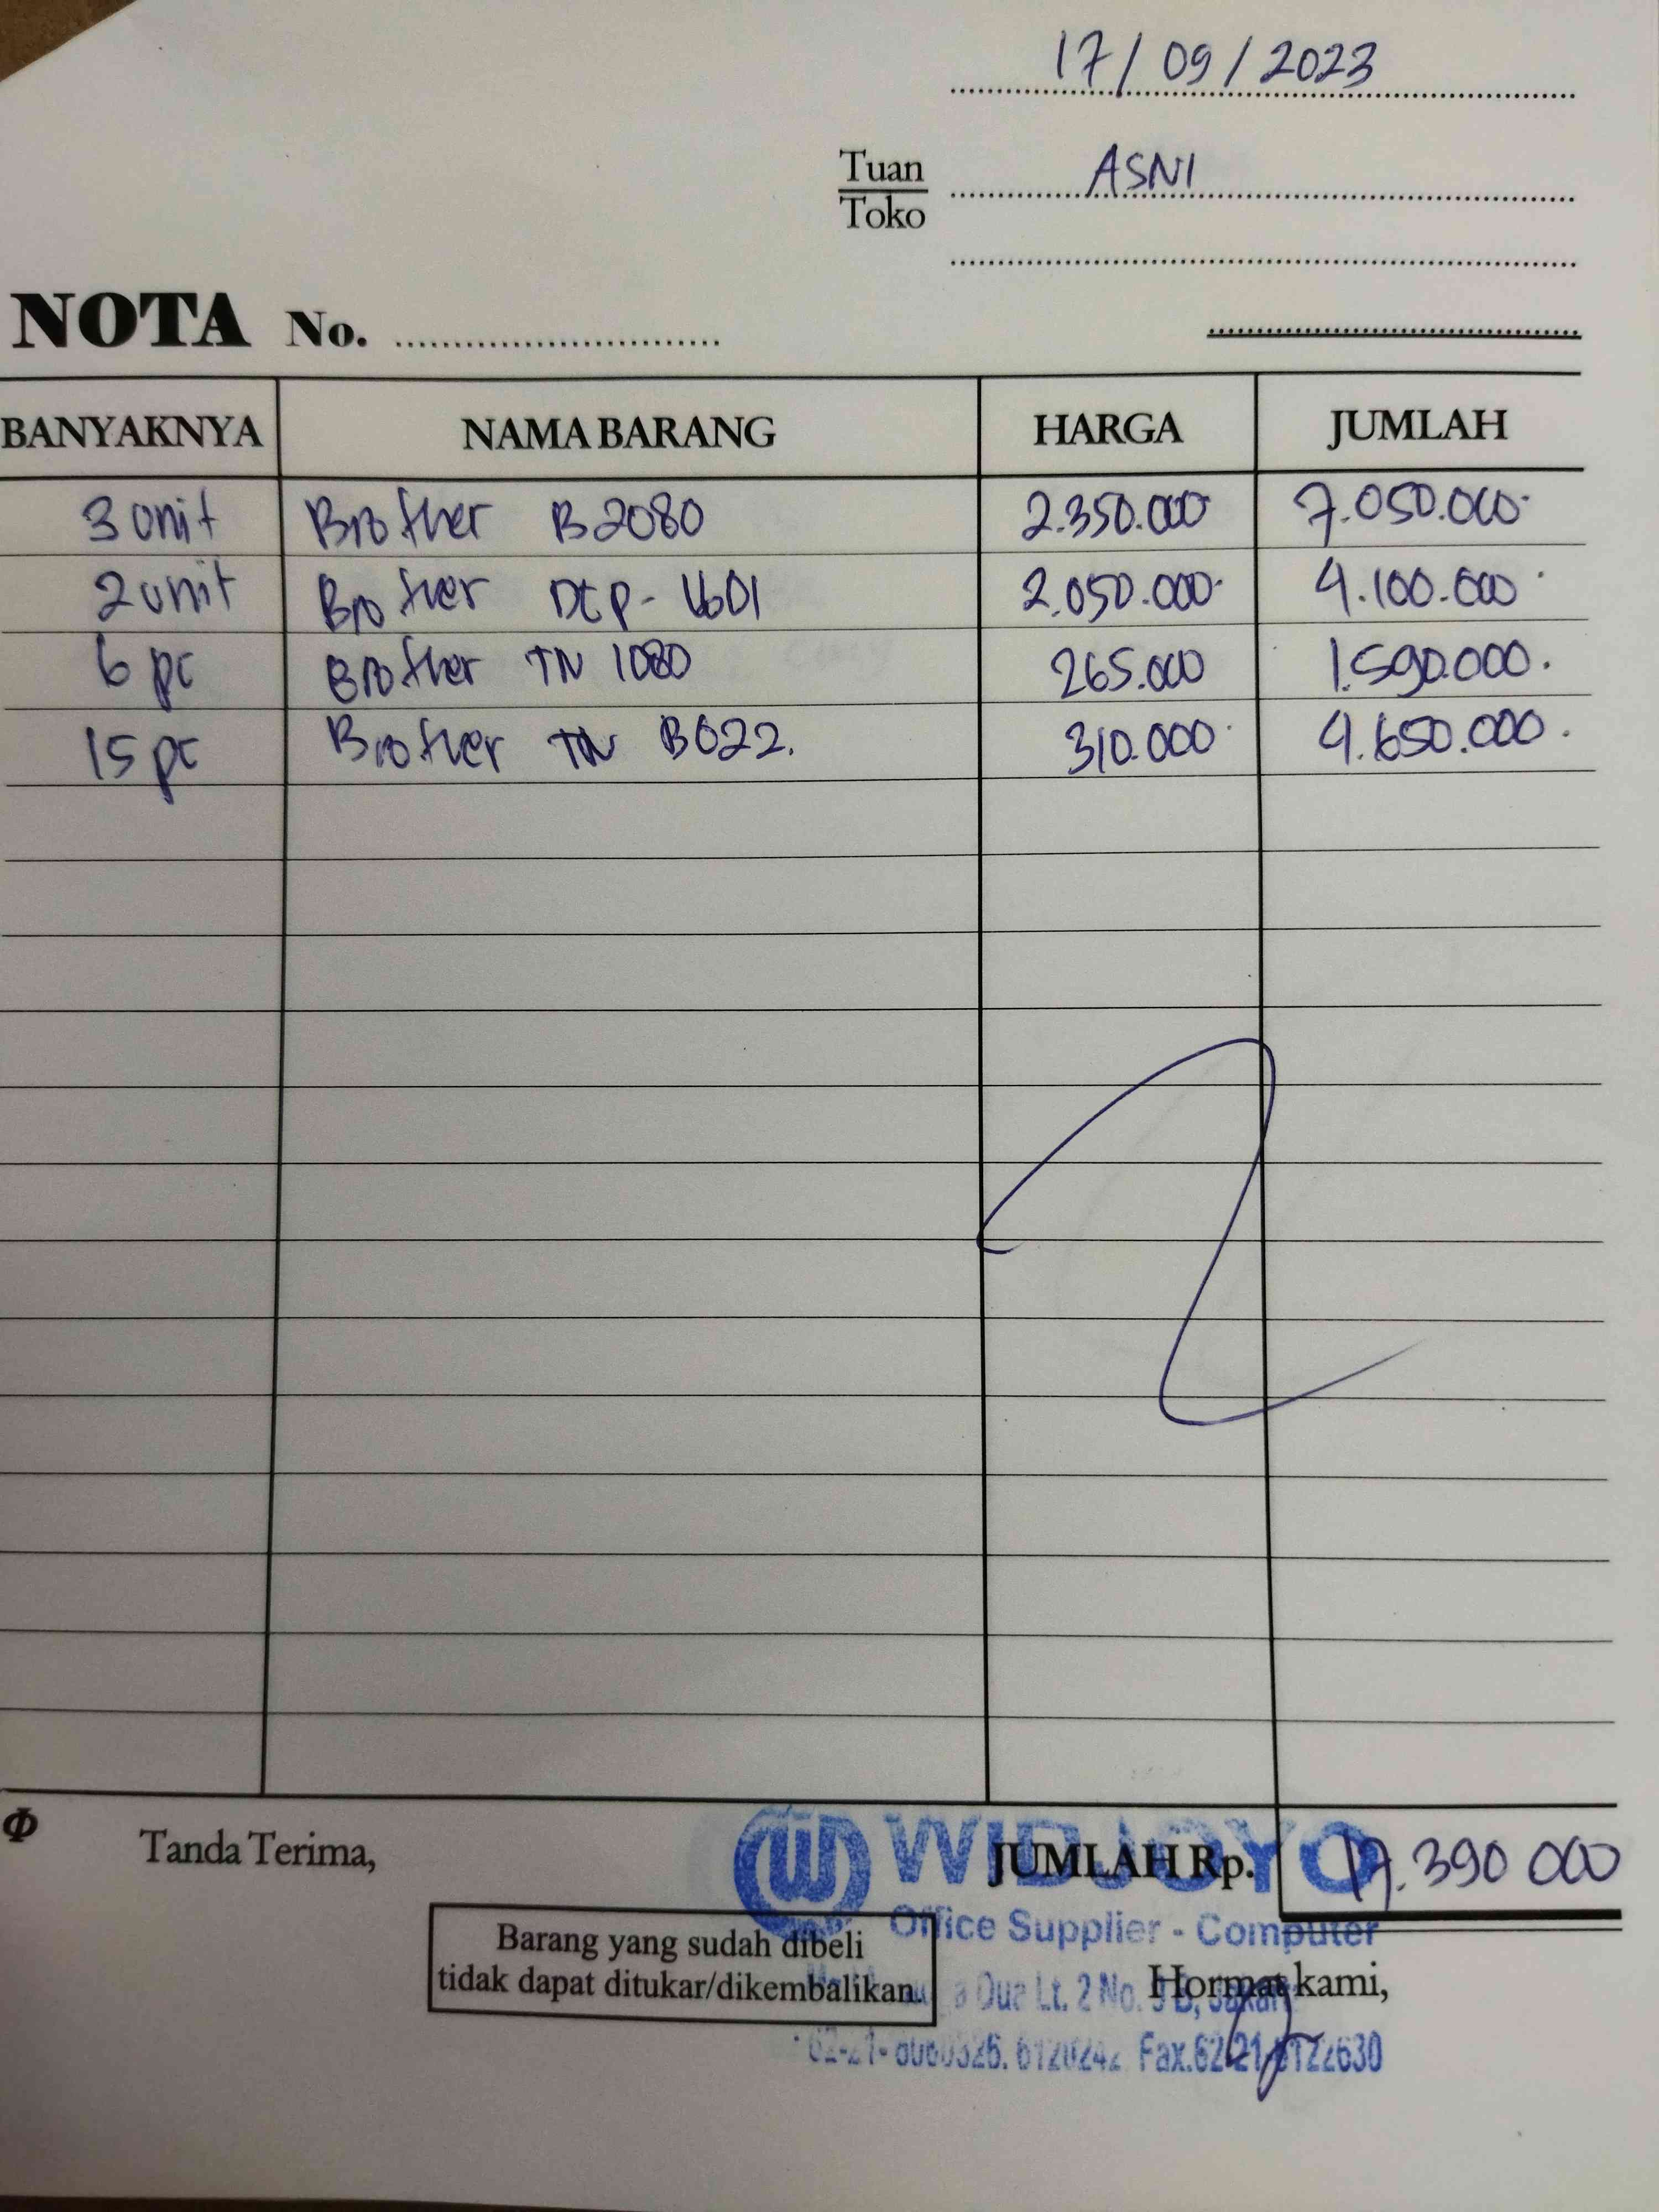 17/09/2023
Tuan ASNI
Toko
NOTA No.
BANYAKNYA NAMA BARANG HARGA JUMLAH
3 unit Brother B2080 2.350.000 7.050.000
2 unit Brother DCP- 2.050.000 4.100.000
6 pc Brother TN 1080 265.000 1.590.000.
15 pc Brother TN B022. 310.000 4.650.000.
Tanda Terima,
JUMLAH Rp. 17.390 000
WIDJOYO
Office Supplier - Computer
Barang yang sudah dibeli
tidak dapat ditukar/dikembalikan.
Dua Lt. 2 No.
Hormat kami,
Fax.